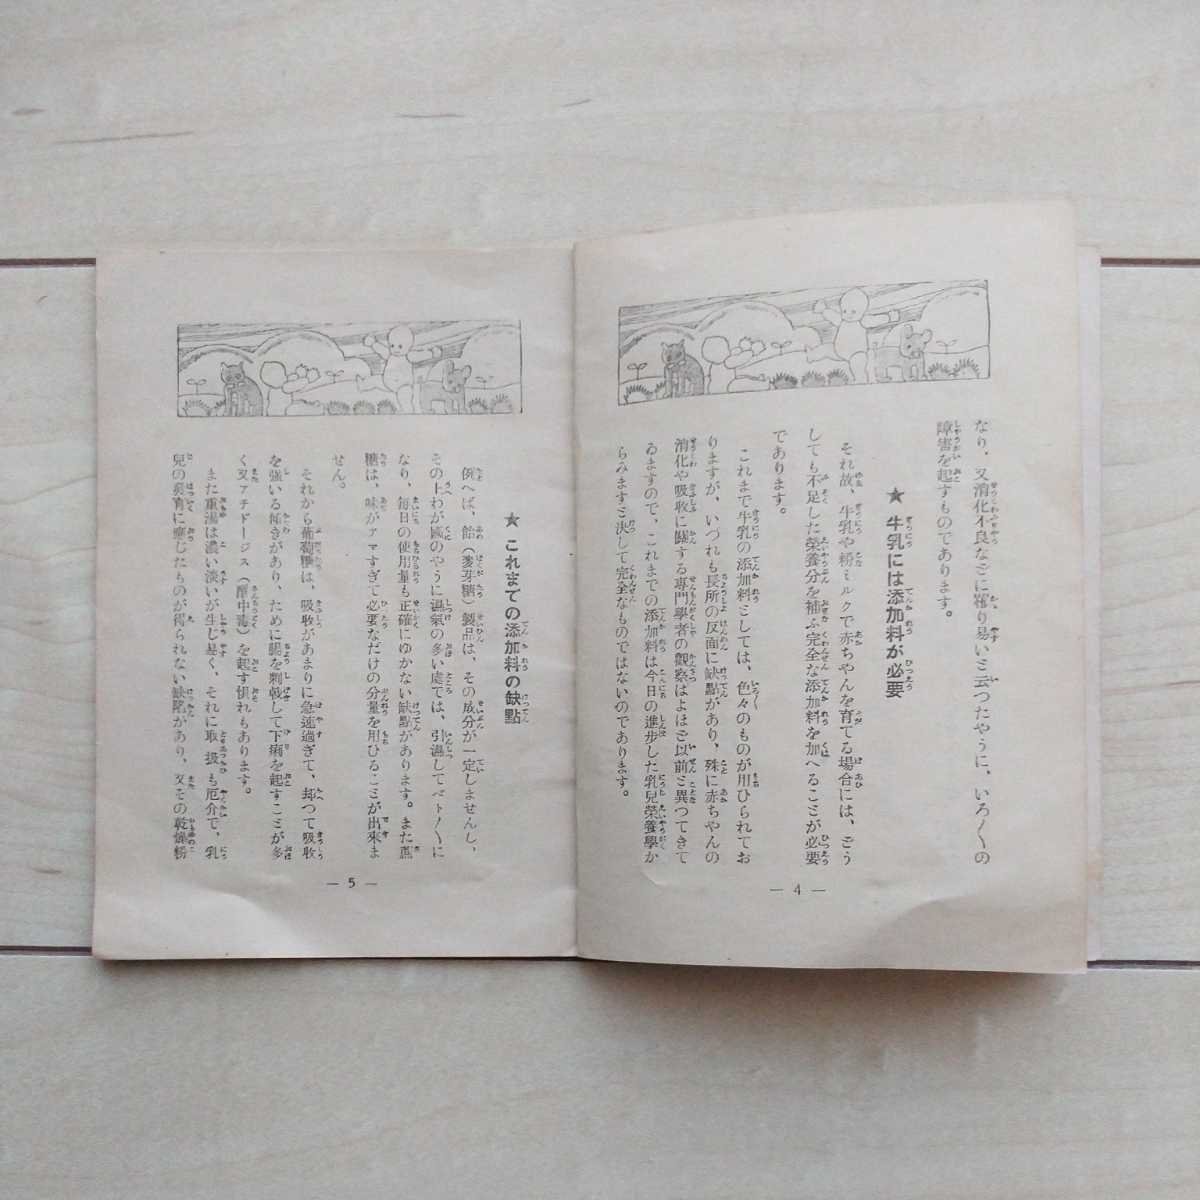 なり、又消化不良などに罹り易いと云つたやうに、いろ〳〵の
障害を起すものであります。
★ 牛乳には添加料が必要
それ故、牛乳や粉ミルクで赤ちやんを育てる場合には、どう
しても不足した榮養分を補ふ完全な添加料を加へることが必要
であります。
これまで牛乳の添加料としては、色々のものが用ひられてお
りますが、いづれも長所の反面に缺點があり、殊に赤ちやんの
消化や吸收に關する專門學者の觀察はよほど以前と異つてきて
ゐますので、これまでの添加料は今日の進歩した乳兒榮養學か
らみますと決して完全なものではないのであります。
— 4 —
★ これまての添加料の缺點
例へば、飴（麥芽糖）製品は、その成分が一定しませんし、
その上わが國のやうに濕氣の多い處では、引濕してベト〳〵に
なり、毎日の使用量も正確にゆかない缺點があります。また蔗
糖は、味がアマすぎて必要なだけの分量を用ひることが出來ま
せん。
それから葡萄糖は、吸收があまりに急速過ぎて、却つて吸收
を強いる傾きがあり、ために腸を刺戟して下痢を起すことが多
く又アチドージス（酸中毒）を起す惧れもあります。
また重湯は濃い淡いが生じ易く、それに取扱も厄介で、乳
兒の發育に應じたものが得られない缺陷があり、又その乾燥粉
— 5 —